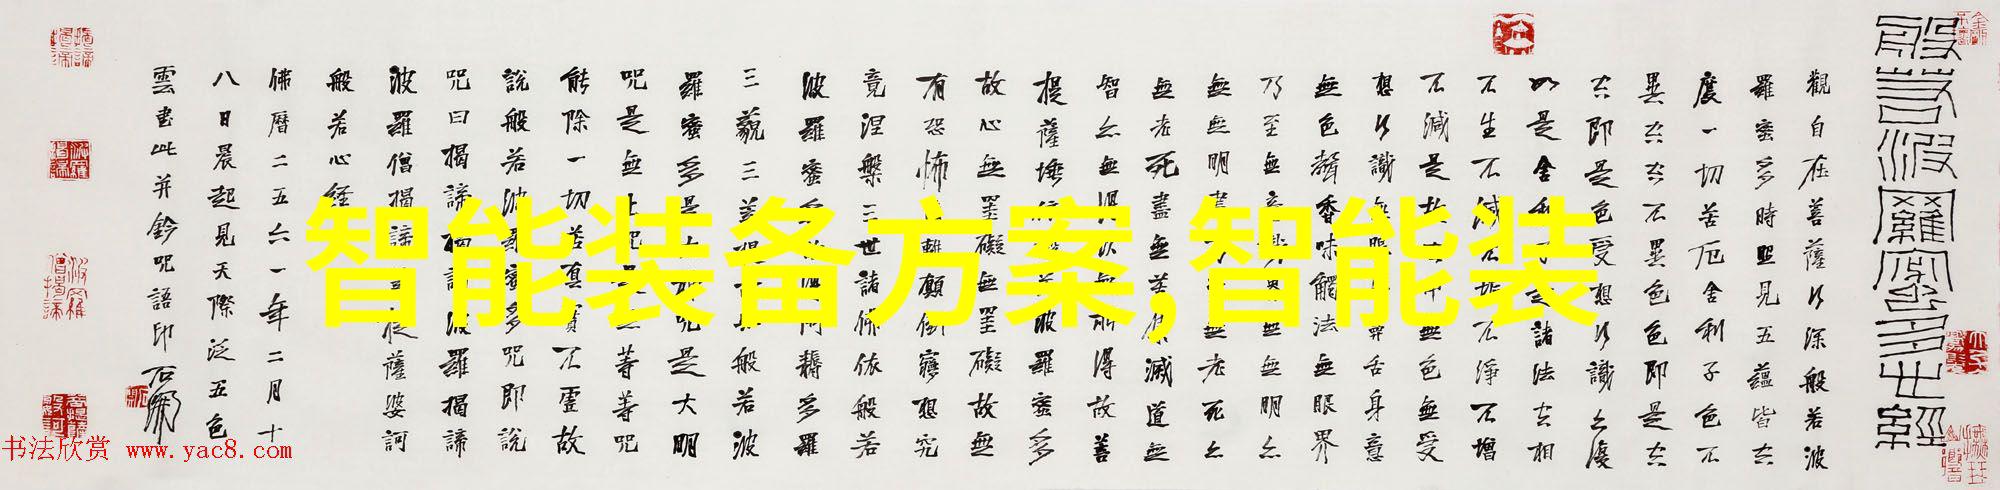 般若波羅蜜多心經
觀自在菩薩行深般若波
羅蜜多時照見五蘊皆空
度一切苦厄舍利子色不
異空空不異色色即是空
空即是色受想行識亦復
如是舍利子是諸法空相
不生不滅不垢不淨不增
不減是故空中無色無受
想行識無眼耳鼻舌身意
無色聲香味觸法無眼界
乃至無意識界無無明亦
無無明盡乃至無老死亦
無老死盡無苦集滅道無
智亦無得以無所得故菩
提薩埵依般若波羅蜜多
故心無罣礙無罣礙故無
有恐怖遠離顛倒夢想究
竟涅槃三世諸佛依般若
波羅蜜多故得阿耨多羅
三藐三菩提故知般若波
羅蜜多是大神咒是大明
咒是無上咒是無等等咒
能除一切苦真實不虛故
說般若波羅蜜多咒即說
咒曰揭諦揭諦波羅揭諦
波羅僧揭諦菩提薩婆訶
般若心経
佛曆二五六一年二月十
八日晨起見天際泛五色
雲書此并鈐咒語印
智能装备方案,智能装
书法欣赏 www.yac8.com